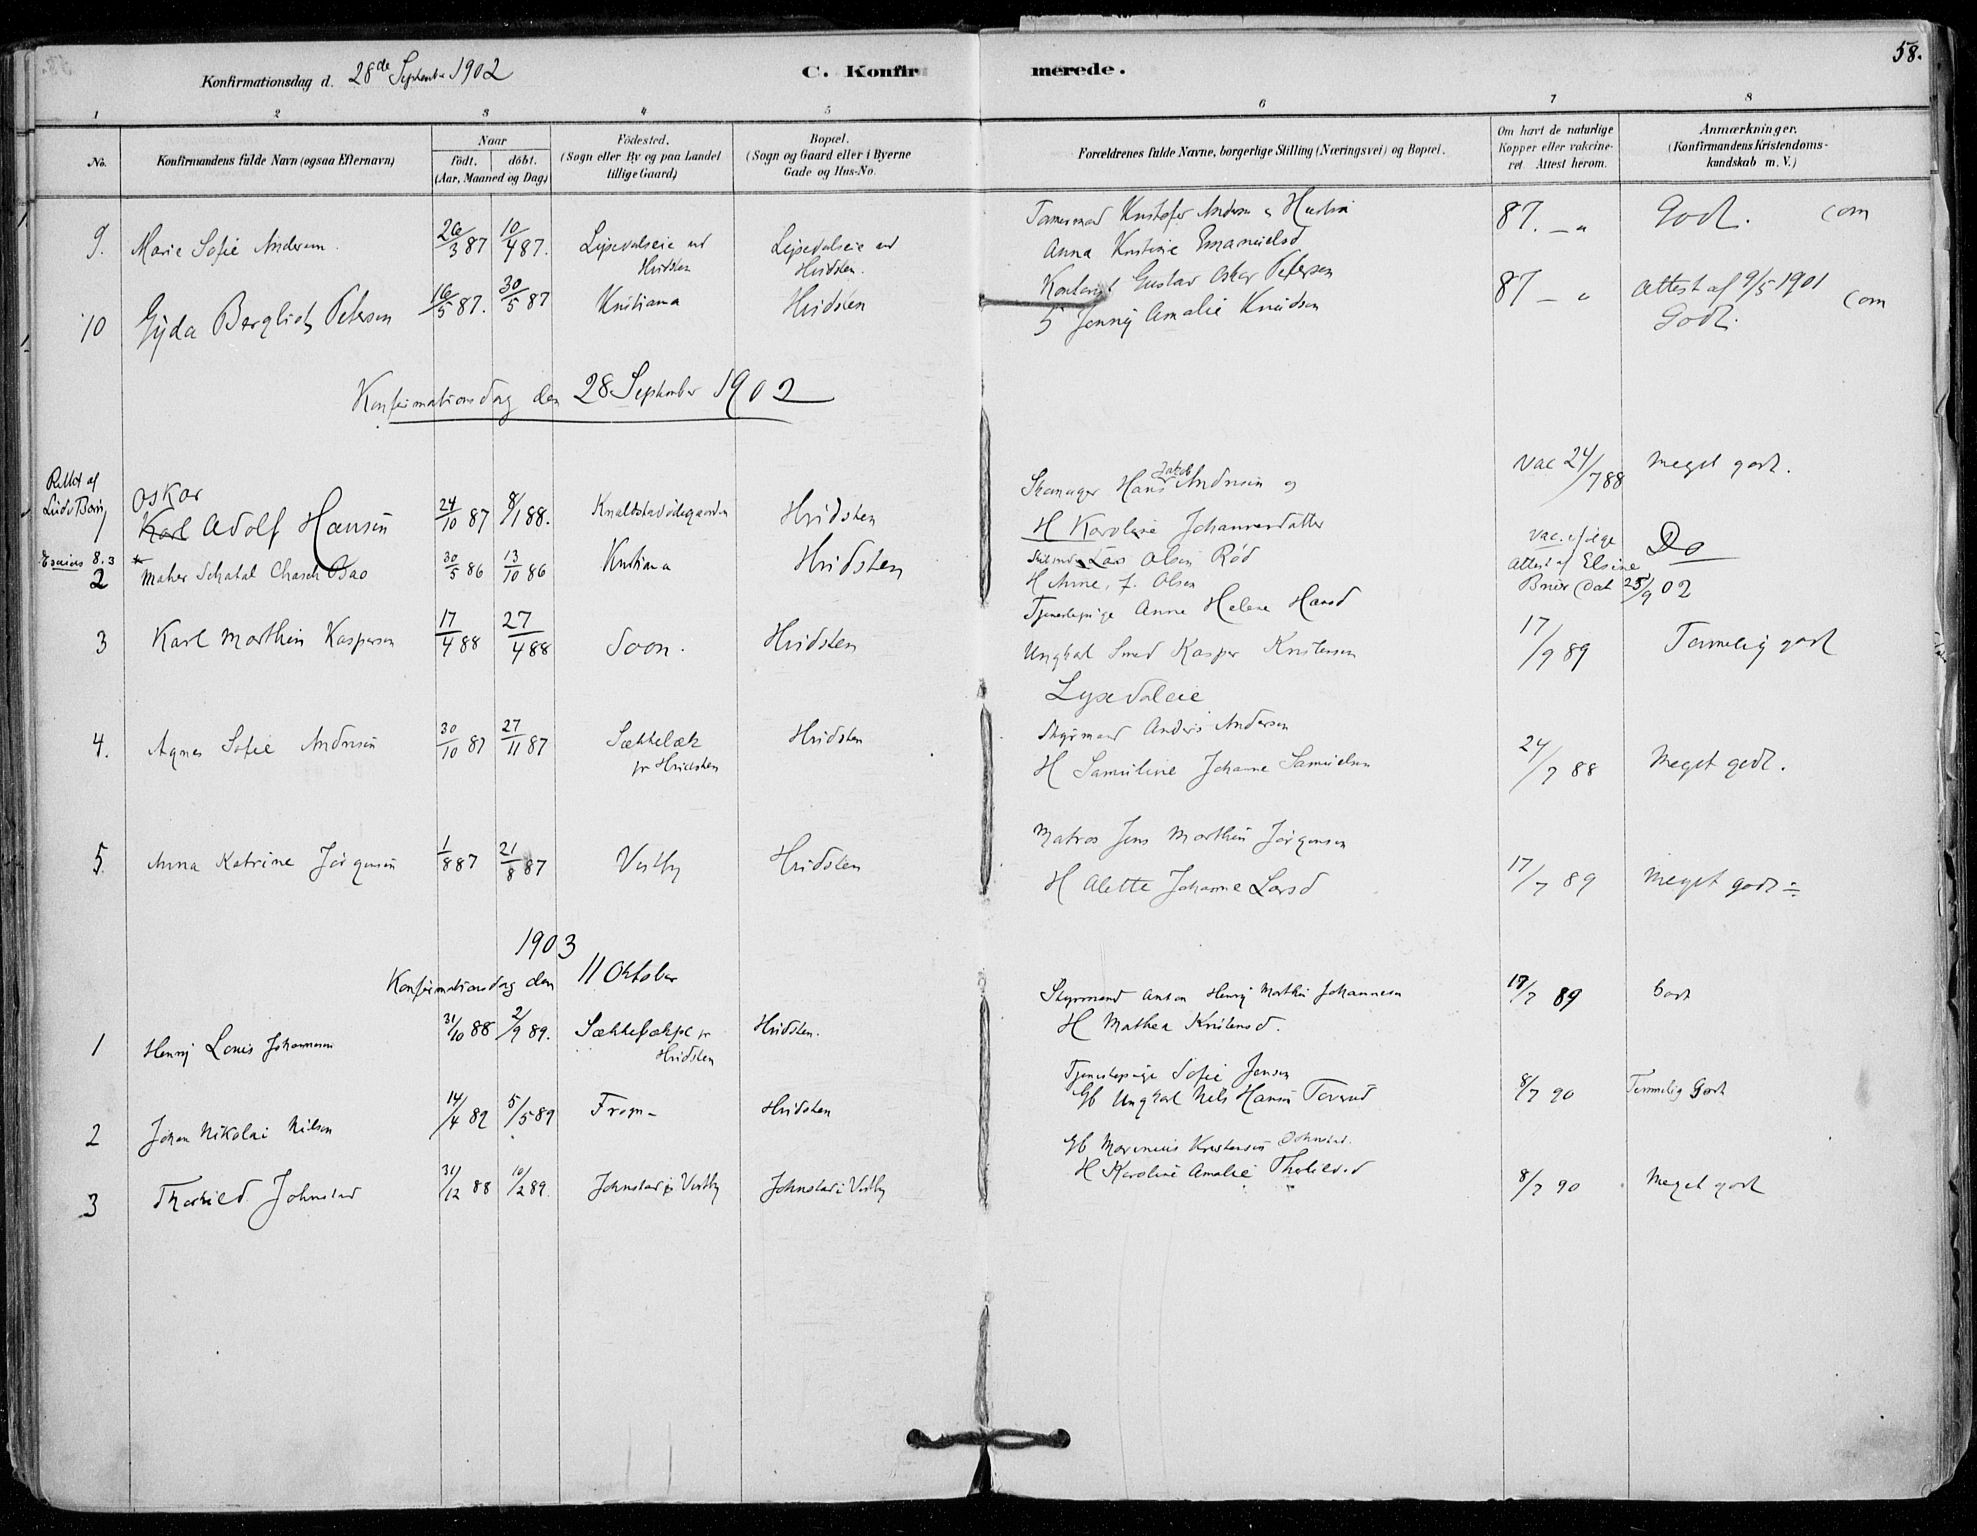 58.
Konfirmationsdag d. 28de September 1902
C. Konfirmerede.
1 2 3 4 5 6 7 8
No.
Konfirmandens fulde Navn (ogsaa Efternavn)
Naar
født. døbt.
(Aar, Maaned og Dag)
Fødested.
(Sogn eller By og paa Landet
tillige Gaard)
Bopæl.
(Sogn og Gaard eller i Byerne
Gade og Hus-No.
Forældrenes fulde Navne, borgerlige Stilling (Næringsvei) og Bopæl.
Om havt de naturlige
Kopper eller vakcine-
ret. Attest herom.
Anmærkninger.
(Konfirmandens Kristendoms-
kundskab m. V.)
9. Marie Sofie Andersen. 26/3 87 10/4 87.
Hvidsten
Hvidsten.
Kristofer Andersen & Hustru
Anna Kristine Emanuelsd
87. - "
Godt. com
10 Gyda Bergliot Petersen 16/5 87. 30/5 87 Kristiania Hvidsten
Gustav Oskar Petersen
Jenny Amalie Knudsen
87 - "
Attest af 9/5 1901
Godt. com
Konfirmationsdag den 28 September 1902
Rettet af
1 Oskar
Karl Adolf Hansen 24/10 87 8/1 88. Hvidsten
Hans Jakob Andersen og
H Karoline Johannesdatter
Vac 24/7 88
Meget godt.
Esaias 8.3
2 Maher Schalal Chasch Bas 30/5 86 13/10 86 Kristiania Hvidsten
Lars Olsen Rød
H Anne, f. Olsen
Vac. ifølge
Attest af Elsine
Brier dat 25/9 02
Do
3 Karl Marthin Kaspersen 17/4 88 27/4 88 Soon. Hvidsten
Tjenestepige Anne Helene Hansd
Ungkarl Smed Kasper Kristensen
17/9 89
Temmelig godt
4. Agnes Sofie Andersen 30/10 87 27/11 87 Sækkebæk
pr Hvidsten
Hvidsten
Styrmand Anders Andersen
H Samuline Johanne Samuelsen
24/7 88
Meget godt.
5. Anna Katrine Jørgensen 1/8 87 21/8 87 Vestby Hvidsten
Matros Jens Marthin Jørgensen
H Alette Johanne Larsd
17/7 89
Meget godt ÷
1903
Konfirmationsdag den 11 Oktober
1 Henry Louis Johannesen 31/10 88 2/9 89. pr
Hvidsten
Hvidsten.
Styrmand Anton Henry Marthin Johannesen
H Mathea Kristensd.
17/7 89
Godt
2 Johan Nikolai Nilsen 14/4 89 5/5 89 Hvidsten
Tjenestepige Sofie Jensen
Gb Ungkarl Nils Hansen
8/7 90
Temmelig Godt
3 Thorkild Johnstad 31/12 88 10/2 89. Johnstad i Vestby Johnstad i Vestby
Gb Marinius Kristensen Johnstad.
H Karoline Amalie
8/7 90
Meget godt